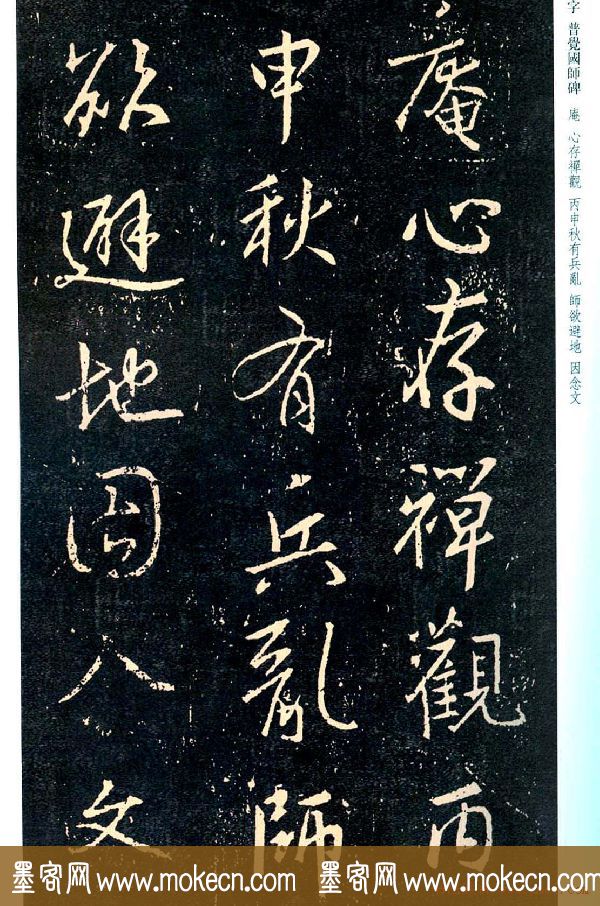 字 普覺國師碑 庵 心存禪觀 丙申秋有兵亂 師欲避地 因念文
庵心存禪觀丙
申秋有兵亂師
欲避地因念文
墨客网 www.mokecn.com 墨客网 www.mokecn.com